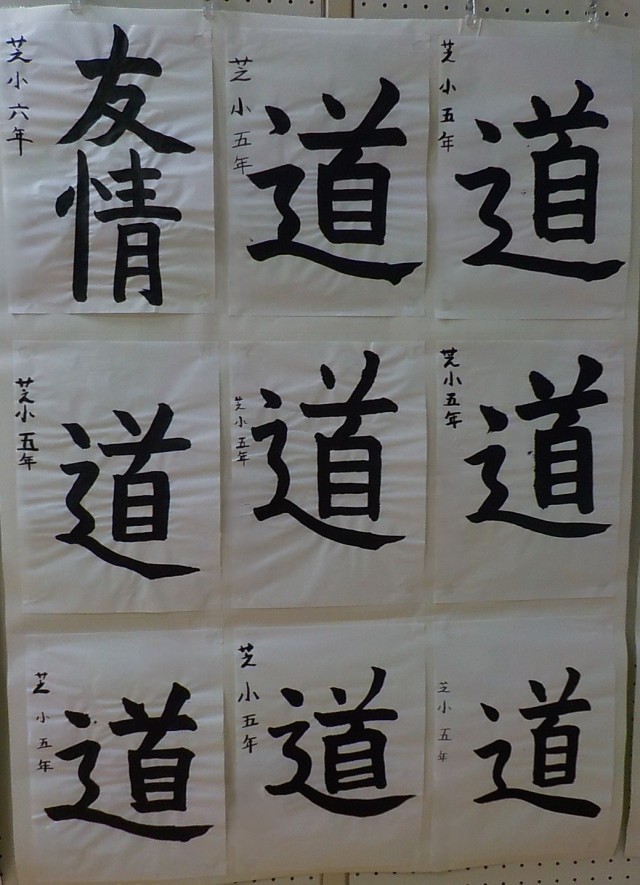 友情
芝小六年
道
芝小五年
道
芝小五年
道
芝小五年
道
芝小五年
道
芝小五年
道
芝小五年
道
芝小五年
道
芝小五年